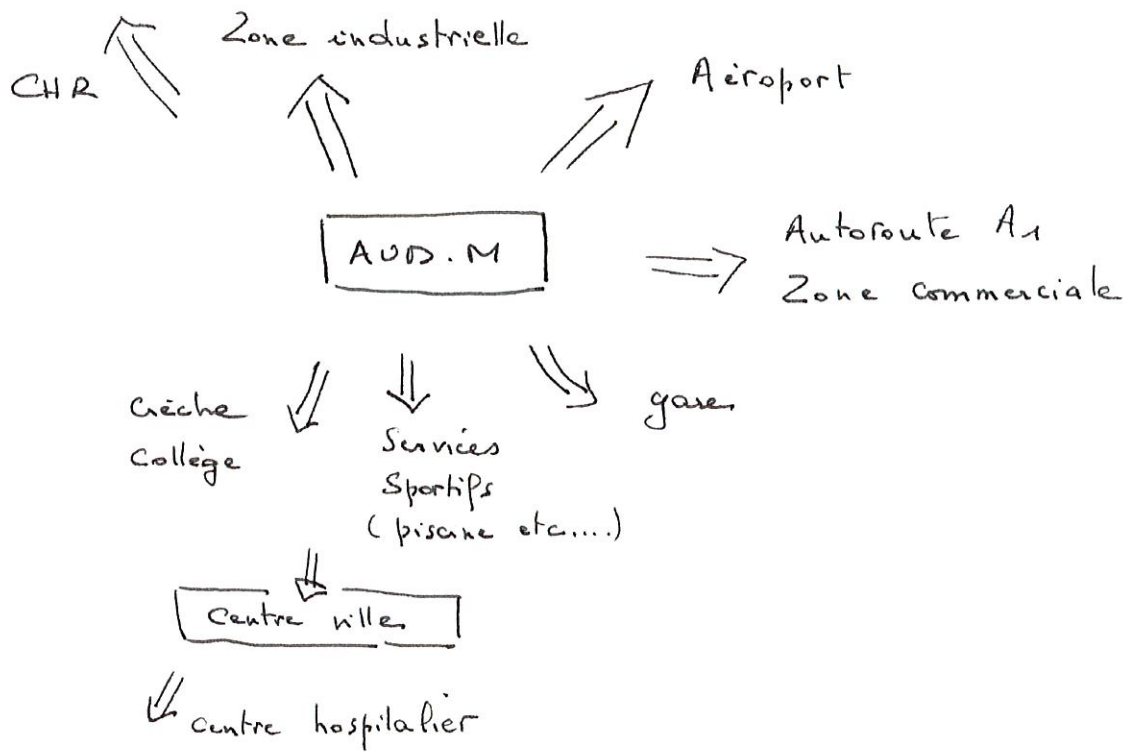 Zone industrielle
CHR
Aéroport
AUD.M
Autoroute A1
Zone commerciale
Crèche
Collège
gares
Services
Sportifs
(piscine etc....)
Centre ville
centre hospitalier